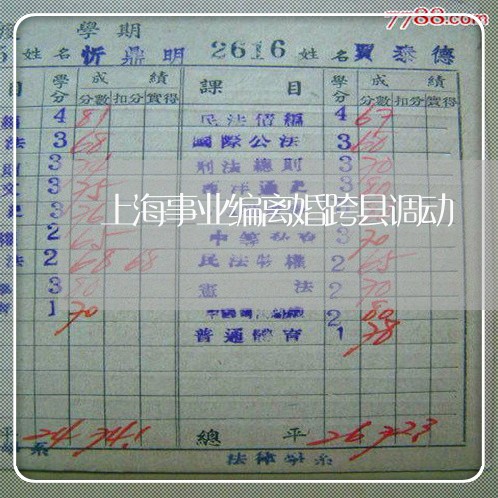 7788.com
學期
姓名 忻鼎明 2616 姓名 賈泰德
目 學分 成績 課目 學分 成績
分數 扣分 實得 分數 扣分 實得
4 81 民法債編 4 67
法 3 68 國際公法 3 60
3 刑法總則 3 70
3 75 3 80
上海事业编离婚跨县调动
2 65 3 70
法 2 68 68 民法物權 2 65
3 80 憲法 2 70
1 70 2 80
普通體育 1 78
24 74.1 總平 26 72.3
系 法律學系